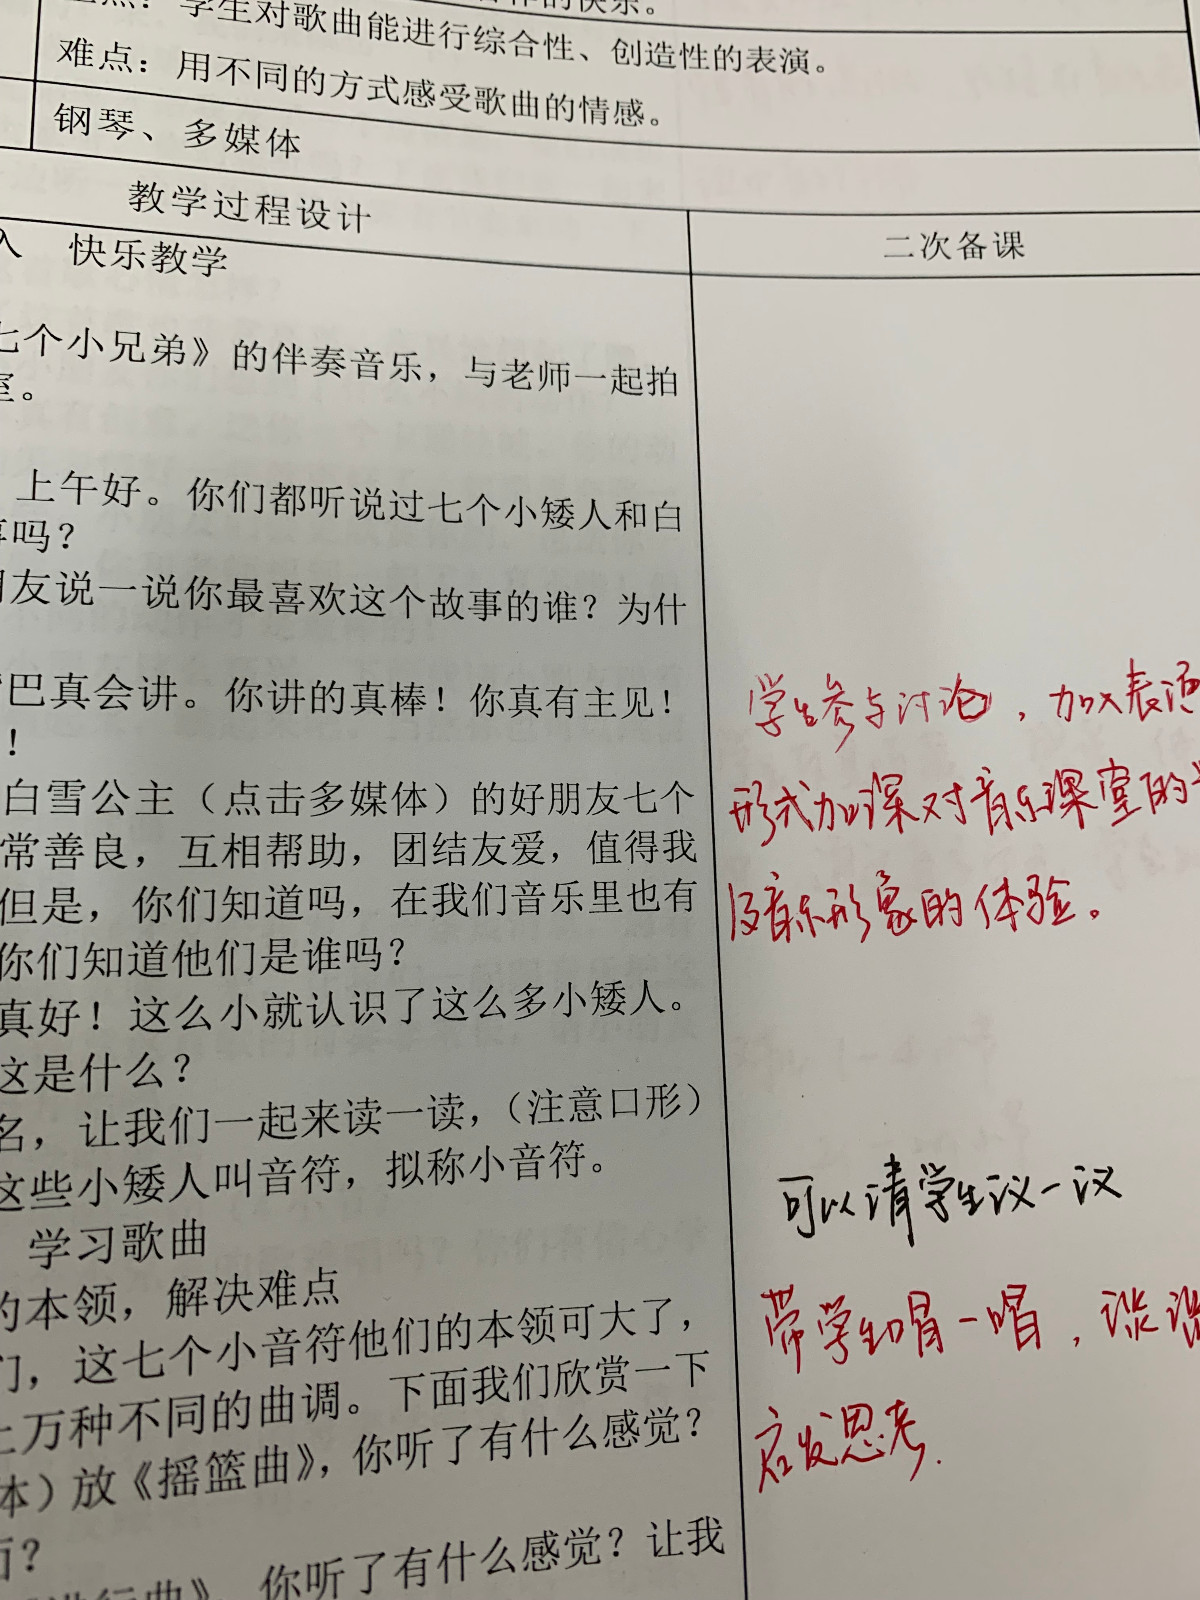 学生对歌曲能进行综合性、创造性的表演。
难点：用不同的方式感受歌曲的情感。
钢琴、多媒体
教学过程设计
二次备课
入 快乐教学
七个小兄弟》的伴奏音乐，与老师一起拍
室。
上午好。你们都听说过七个小矮人和白
事吗？
朋友说一说你最喜欢这个故事的谁？为什
嘴巴真会讲。你讲的真棒！你真有主见！
！
白雪公主（点击多媒体）的好朋友七个
常善良，互相帮助，团结友爱，值得我
但是，你们知道吗，在我们音乐里也有
你们知道他们是谁吗？
真好！这么小就认识了这么多小矮人。
这是什么？
名，让我们一起来读一读，（注意口形）
这些小矮人叫音符，拟称小音符。
学习歌曲
的本领，解决难点
们，这七个小音符他们的本领可大了，
上万种不同的曲调。下面我们欣赏一下
体）放《摇篮曲》，你听了有什么感觉？
？
进行曲》，你听了有什么感觉？让我
学生参与讨论，加入表演
形式加深对音乐课堂的
及音乐形象的体验。
可以请学生议一议
带学生唱一唱，谈谈
启发思考.